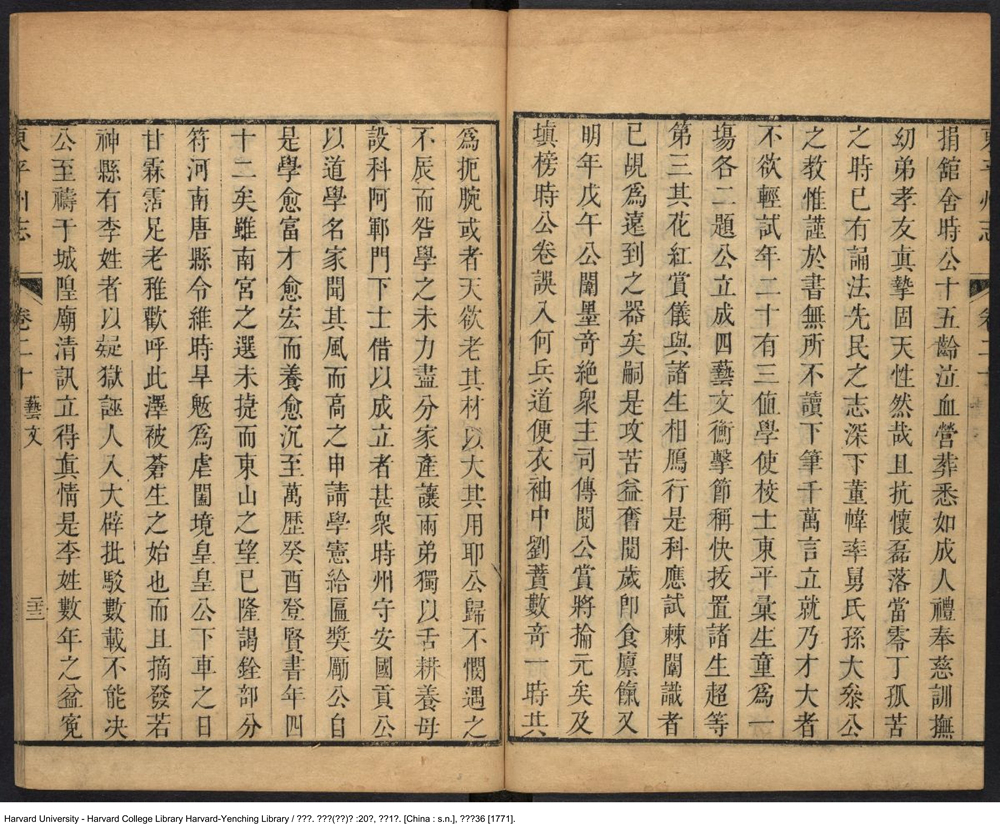 捐館舍時公十五齡泣血營葬悉如成人禮奉慈訓撫
幼弟孝友真摯固天性然哉且抗懷磊落當零丁孤苦
之時已有誦法先民之志深下董幃率舅氏孫大叅公
之教惟謹於書無所不讀下筆千萬言立就乃才大者
不欲輕試年二十有三值學使校士東平彙生童為一
場各二題公立成四藝文衡擊節稱快拔置諸生超等
第三其花紅賞儀與諸生相鴈行是科應試棘闈識者
已覘為遠到之器矣嗣是攻苦益奮閱歲卽食廩餼又
明年戊午公闈墨竒絕衆主司傳閱公賞將掄元矣及
塡榜時公卷誤入何兵道便衣袖中劉蕡數竒一時共
為扼腕或者天欲老其材以大其用耶公歸不憫遇之
不辰而咎學之未力盡分家產讓兩弟獨以舌耕養母
設科阿鄆門下士借以成立者甚衆時州守安國貢公
以道學名家聞其風而高之申請學憲給匾奬勵公自
是學愈富才愈宏而養愈沉至萬歷癸酉登賢書年四
十二矣雖南宮之選未捷而東山之望已隆謁銓部分
符河南唐縣令維時旱魃為虐闔境皇皇公下車之日
甘霖霑足老稚歡呼此澤被蒼生之始也而且摘發若
神縣有李姓者以疑獄誣人入大辟批駁數載不能决
公至禱于城隍廟清訊立得真情是李姓數年之盆寃
東平州志 卷二十 藝文 二三
Harvard University - Harvard College Library Harvard-Yenching Library / ???. ???(??)? :20?, ??1?. [China : s.n.], ???36 [1771].